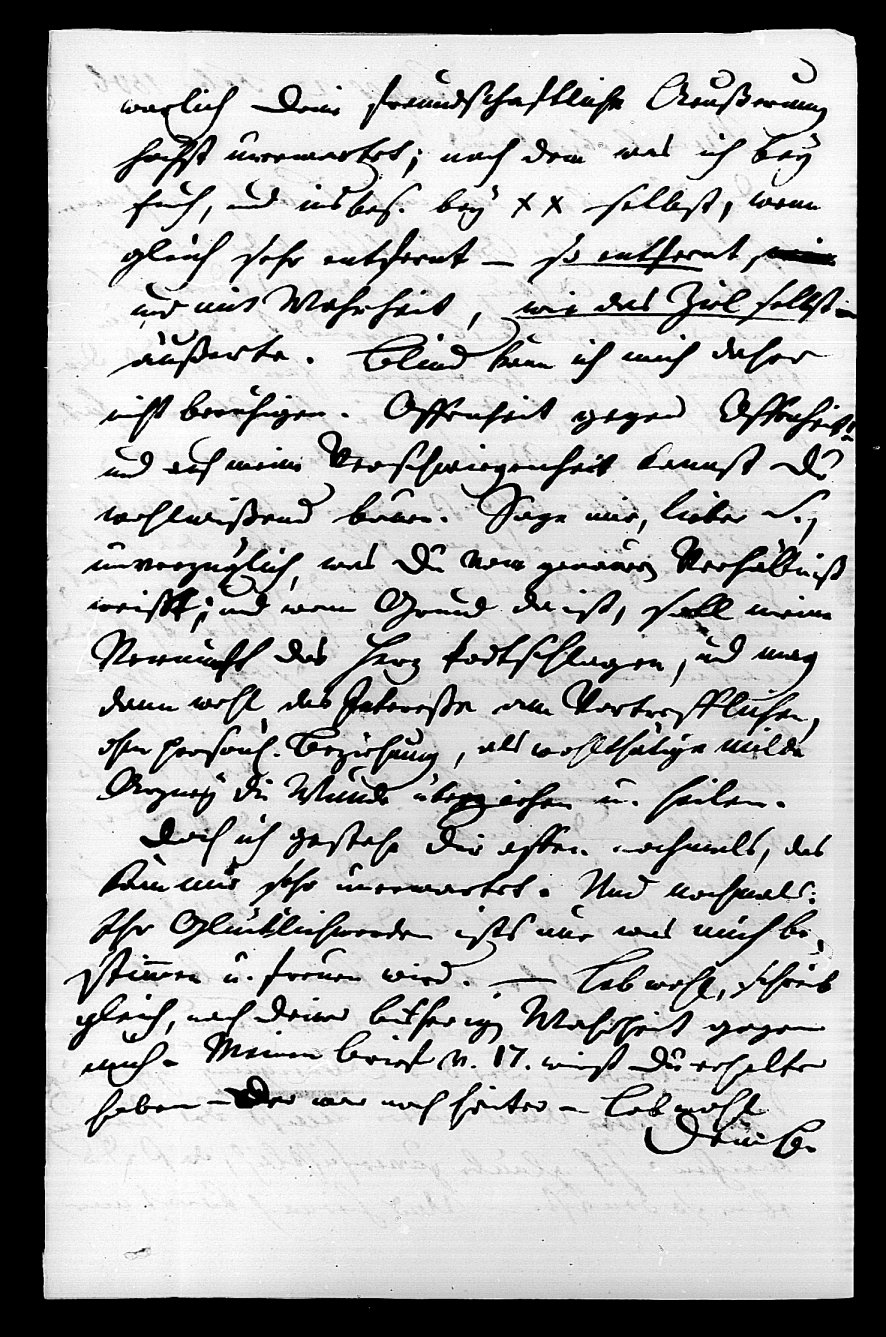 warlich Deine freundschaftliche Aeußerung
höchst unerwartet; nach dem was ich bey
Euch, und insbes. bey XX selbst, wenn
gleich sehr entfernt – so entfernt,
und mit Wahrheit, wie das Ziel selbst
äußerte. Blind kann ich mich daher
nicht beruhigen. Offenheit gegen Offenheit
und auf meine Verschwiegenheit kannst Du
wohlwißend bauen. Sage mir, lieber S.,
unverzüglich, was Du vom genauern Verhältniß
weißt; und wenn Grund da ist, soll meine
Vernunft das Herz todtschlagen, und mag
dann wohl das Interesse am Vortrefflichen,
ohne persönl. Beziehung, als wohlthätige milde
Arzney die Wunde überziehen u. heilen.
Doch ich gestehe Dir offen nochmals, das
kam mir sehr unerwartet. Und nochmals:
Ihr Glücklichwerden ists nur was mich be-
stimmen u. freuen wird. — Leb wohl, schreib
gleich, nach deiner bisherigen Wahrheit gegen
mich. Meinen Brief v. 17. wirst Du erhalten
haben – Der war noch heiter – Leb wohl
Dein B.